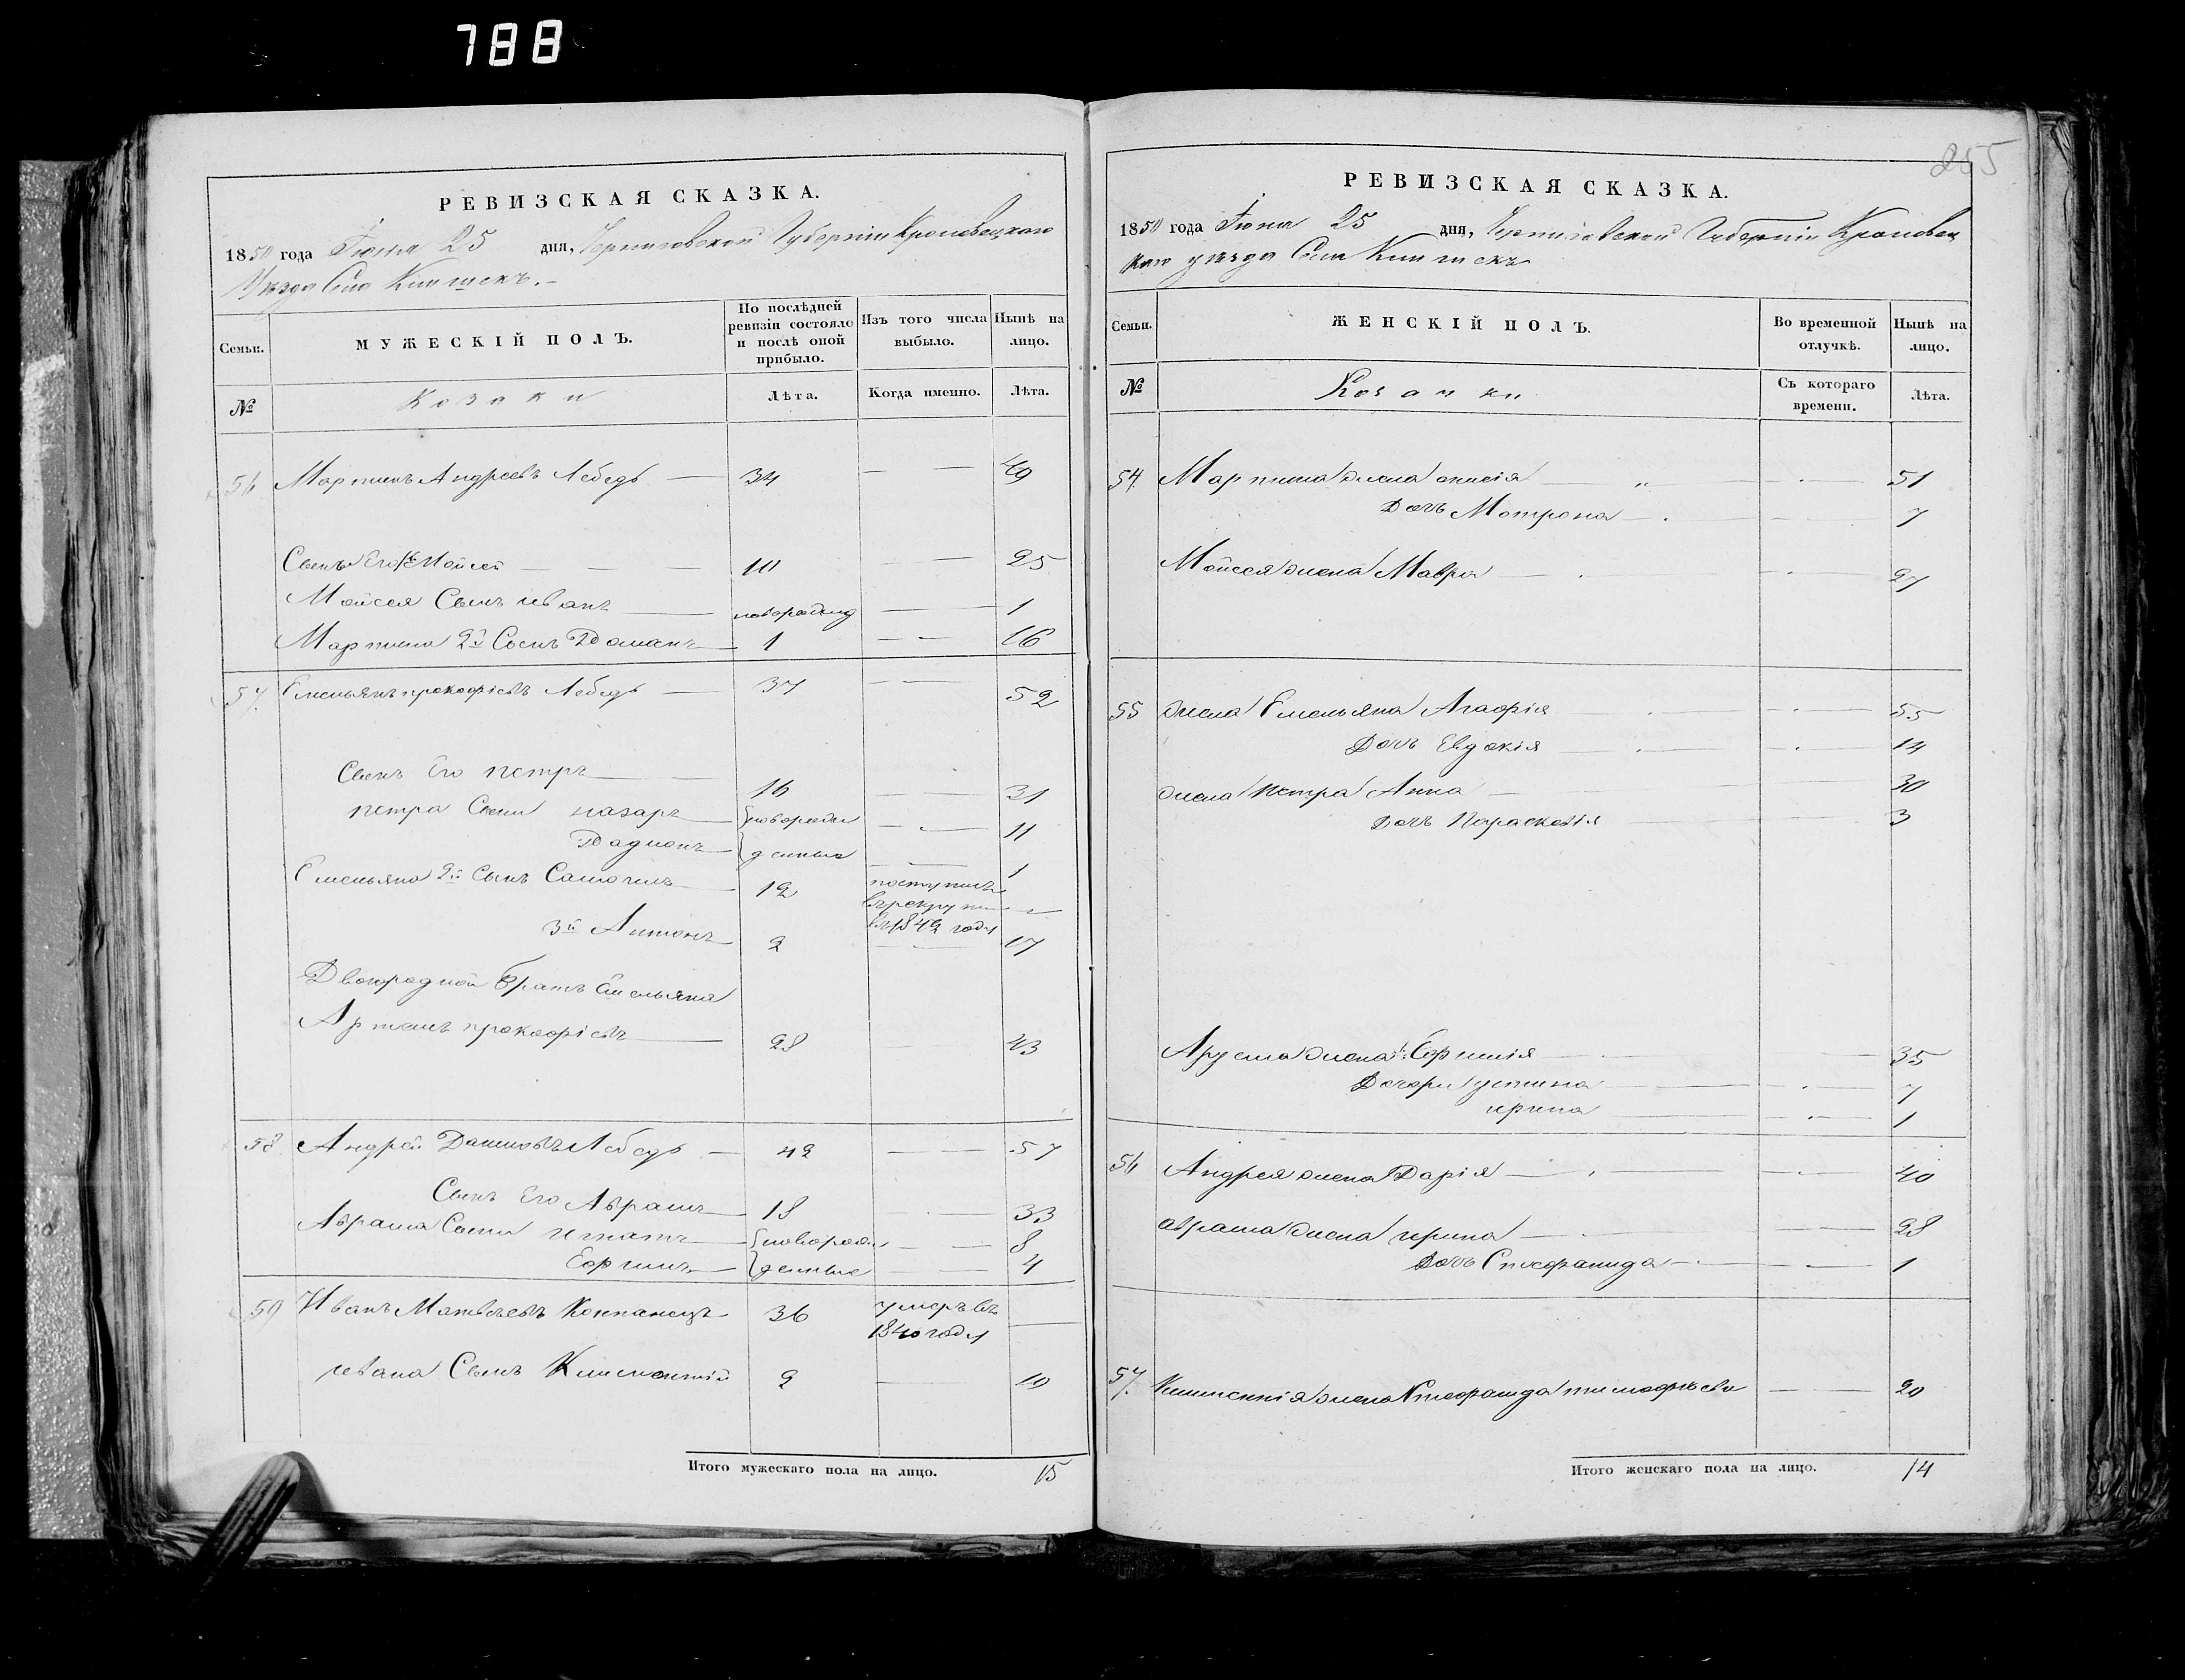 788
РЕВИЗСКАЯ СКАЗКА.
1850 года Июня 25 дня, Черниговской Губернии Кролевецкаго
Уезда Села
Семьи.
МУЖЕСКІЙ ПОЛЪ.
По послѣдней ревизіи состояло и послѣ оной прибыло.
Изъ того числа выбыло.
Нынѣ на лицо.
№
Козаки
Лѣта.
Когда именно.
Лѣта.
56 Мартинъ Андреевъ Лебедь 34 — — 49
Сынъ Его Мойсей 10 — 25
Мойсея Сынъ иванъ новорожд — 1
Мартина 2й Сынъ 1 — 16
57 Емельянъ прокофіевъ Лебедь 37 — — 52
Сынъ Его петръ 16 — 31
петра Сыни назаръ новорож — 11
денные — 1
Емельяна 2й Сынъ Самоилъ 12 поступилъ
въ рекруты —
въ 1842 году
3й Антонъ 2 — 17
Двоюродной братъ Емельяна
Артемъ прокофіевъ 28 — 43
58 Андрей Лебедь 42 — — 57
Сынъ Его Абрамъ 18 — 33
Абрама Сыни игнатъ новорож — 8
Ефимъ денные — 4
59 Иванъ Матвѣевъ 36 умеръ въ —
1840 году
ивана Сынъ 2 — 19
Итого мужескаго пола на лицо. 15
255
РЕВИЗСКАЯ СКАЗКА.
1850 года Июня 25 дня, Черниговской Губернии Кролевец
каго уезда Села
Семьи.
ЖЕНСКІЙ ПОЛЪ.
Во временной отлучкѣ.
Нынѣ на лицо.
№
Козачки.
Съ котораго времени.
Лѣта.
54 Мартина жена — 51
Дочь Мотрона — 7
Мойсея жена Мавра — 27
55 жена Емельяна Агафія — 55
Дочь Евдокія — 14
жена петра Анна — 30
Дочь Параскевія — 3
жена — 35
Дочери устина — 7
ирина — 1
56 Андрея жена Дарія — 40
абрама жена ирина — 28
Дочь — 1
57 жена тимофѣева — 20
Итого женскаго пола на лицо. 14